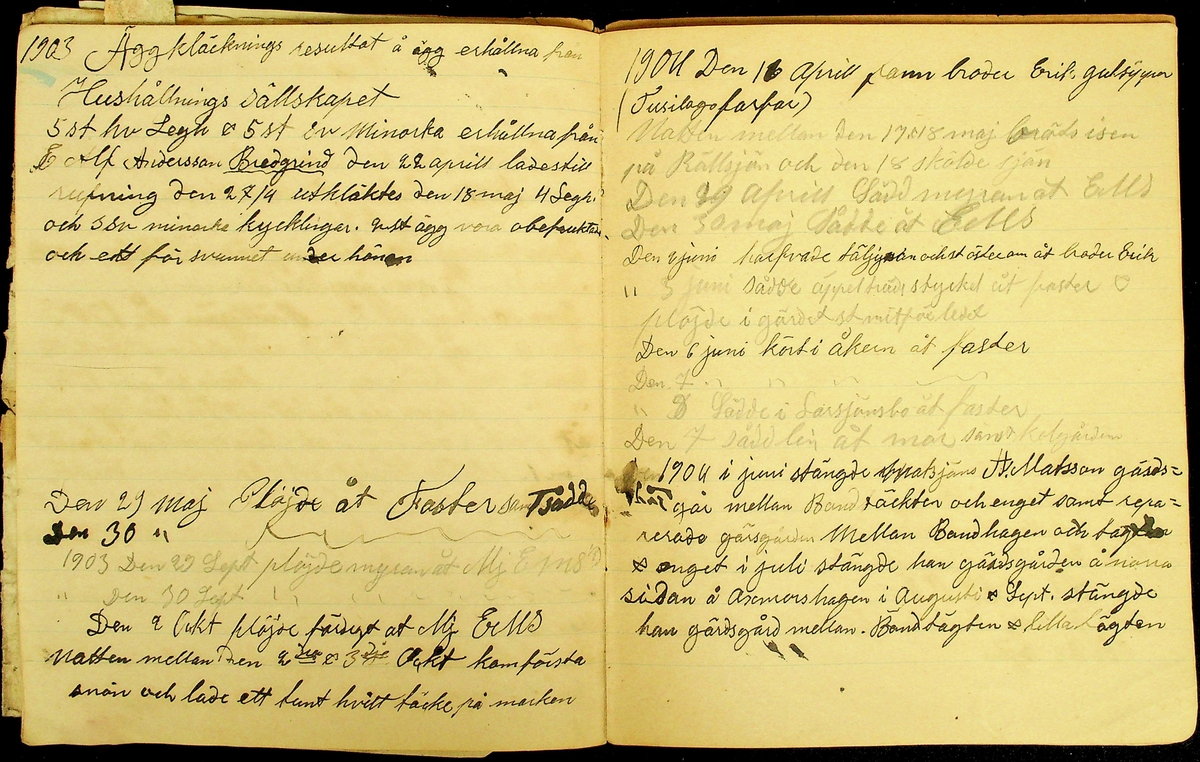 1903 Äggkläcknings resultat å ägg erhållna från
Hushållnings sällskapet
5 st hv Legh & 5 st sv Minorka erhållna från
Alf Andersson Bredgrind den 22 aprill lades till
rufning den 27/4 utkläktes den 18 maj 4 Legh.
och 3 sv minorka kycklingar. 2 st ägg voro obefruktade
och ett försvunnet under hönan
Den 29 maj Plöjde åt Faster samt sådde
Den 30 "
1903 Den 29 Sept plöjde myran åt Mj EMSD
" Den 30 Sept " " "
Den 2 Okt plöjde färdigt åt Mj EMSD
Natten mellan den 2dra & 3dje Okt kom första
snön och lade ett tunt hvitt täcke på marken
1904 Den 16 Aprill fann broder Erik gulsippor
(Tusilago farfar)
Natten mellan den 17 & 18 maj bräts isen
på Rällsjön och den 18 skölde sjön
Den 29 Aprill Sådd myran åt EMSD
Den 30 maj Sådde åt EMSD
Den 2 juni harfvade täljgården och st öster om åt broder Erik
" 3 juni sådde äppelträds stycket åt faster &
plöjde i gärdet st mitför ledet
Den 6 juni kört i åkern åt faster
Den 7 " " "
" 8 Sådde i Larsjönsbo åt faster
Den 7 sådd lin åt mor samt kolgården
1904 i juni stängde A. Matsson gärds=
går mellan Band täckten och enget samt repa=
rerade gärsgården Mellan Bandhagen och tagten
& enget i juli stängde han gärdsgården å norra
sidan å Axmorshagen i Augusti & Sept. stängde
han gärdsgård mellan. Bandtägten &